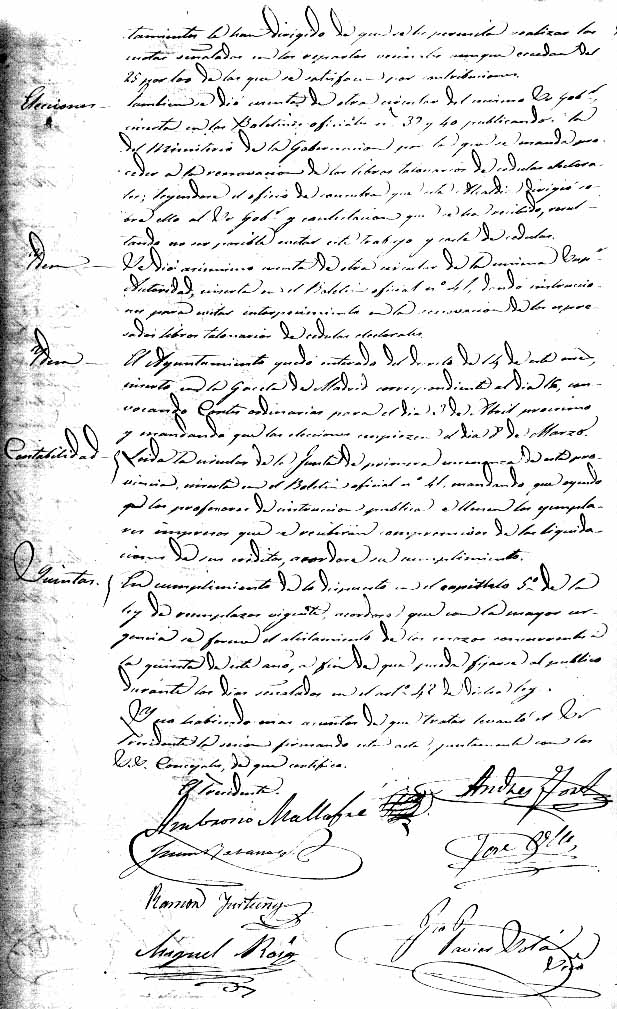 tamientos le han dirigido de que se le permita realizar las
cuotas señaladas en los repartos vecinales aunque excedan del
25 por 100 de las que se satisfacen por contribuciones.
Elecciones
Tambien se dió cuenta de otra circular del mismo Sr Gobr.
inserta en los Boletines oficiales nos 39 y 40 publicando la
del Ministerio de la Gobernacion por la que se manda pro-
ceder a la renovacion de los libros talonarios de cedulas electora-
les; leyendose el oficio de consulta que esta Alcaldia dirigio so-
bre ello al Sr Gobr. y contestacion que se ha recibido, resul-
tando no ser posible evitar este trabajo y coste de cedulas.
Idem
Se dió asimismo cuenta de otra circular de la misma Supr.
Autoridad, inserta en el Boletin oficial nº 41, dando instruccio-
nes para evitar entorpecimientos en la renovacion de los espre-
sados libros talonarios de cedulas electorales.
Idem
El Ayuntamiento quedó enterado del decreto de 14 de este mes,
inserto en la Gaceta de Madrid correspondiente al dia 16, con-
vocando Cortes ordinarias para el dia de Abril procsimo
y mandando que las elecciones empiezen el dia 8 de Marzo.
Contabilidad
Leida la circular de la Junta de primera enseñanza de esta pro-
vincia, inserta en el Boletin oficial nº 41, mandando que
los profesores de instruccion publica llenen los ejempla-
res impresos que se recibirán comprensivos de las liquida-
ciones de sus creditos, acordose su cumplimiento.
Quintas.
En cumplimiento de lo dispuesto en el capitulo 5º de la
ley de reemplazos vigente, acordose que con la mayor ur-
gencia se forme el alistamiento de los mozos concurrentes á
la quinta de este año, a fin de que pueda fijarse al publico
durante los dias señalados en el artº 48 de dicha ley.
Y no habiendo mas asuntos de que tratar levantó el Sr
Presidente la sesion firmando esta acta juntamente con los
S.S. Concejales, de que certifico.
El Presidente.
Ambrosio Mallafré
Andres
Juan
Jose
Ramon Fortuny
Miguel Roig